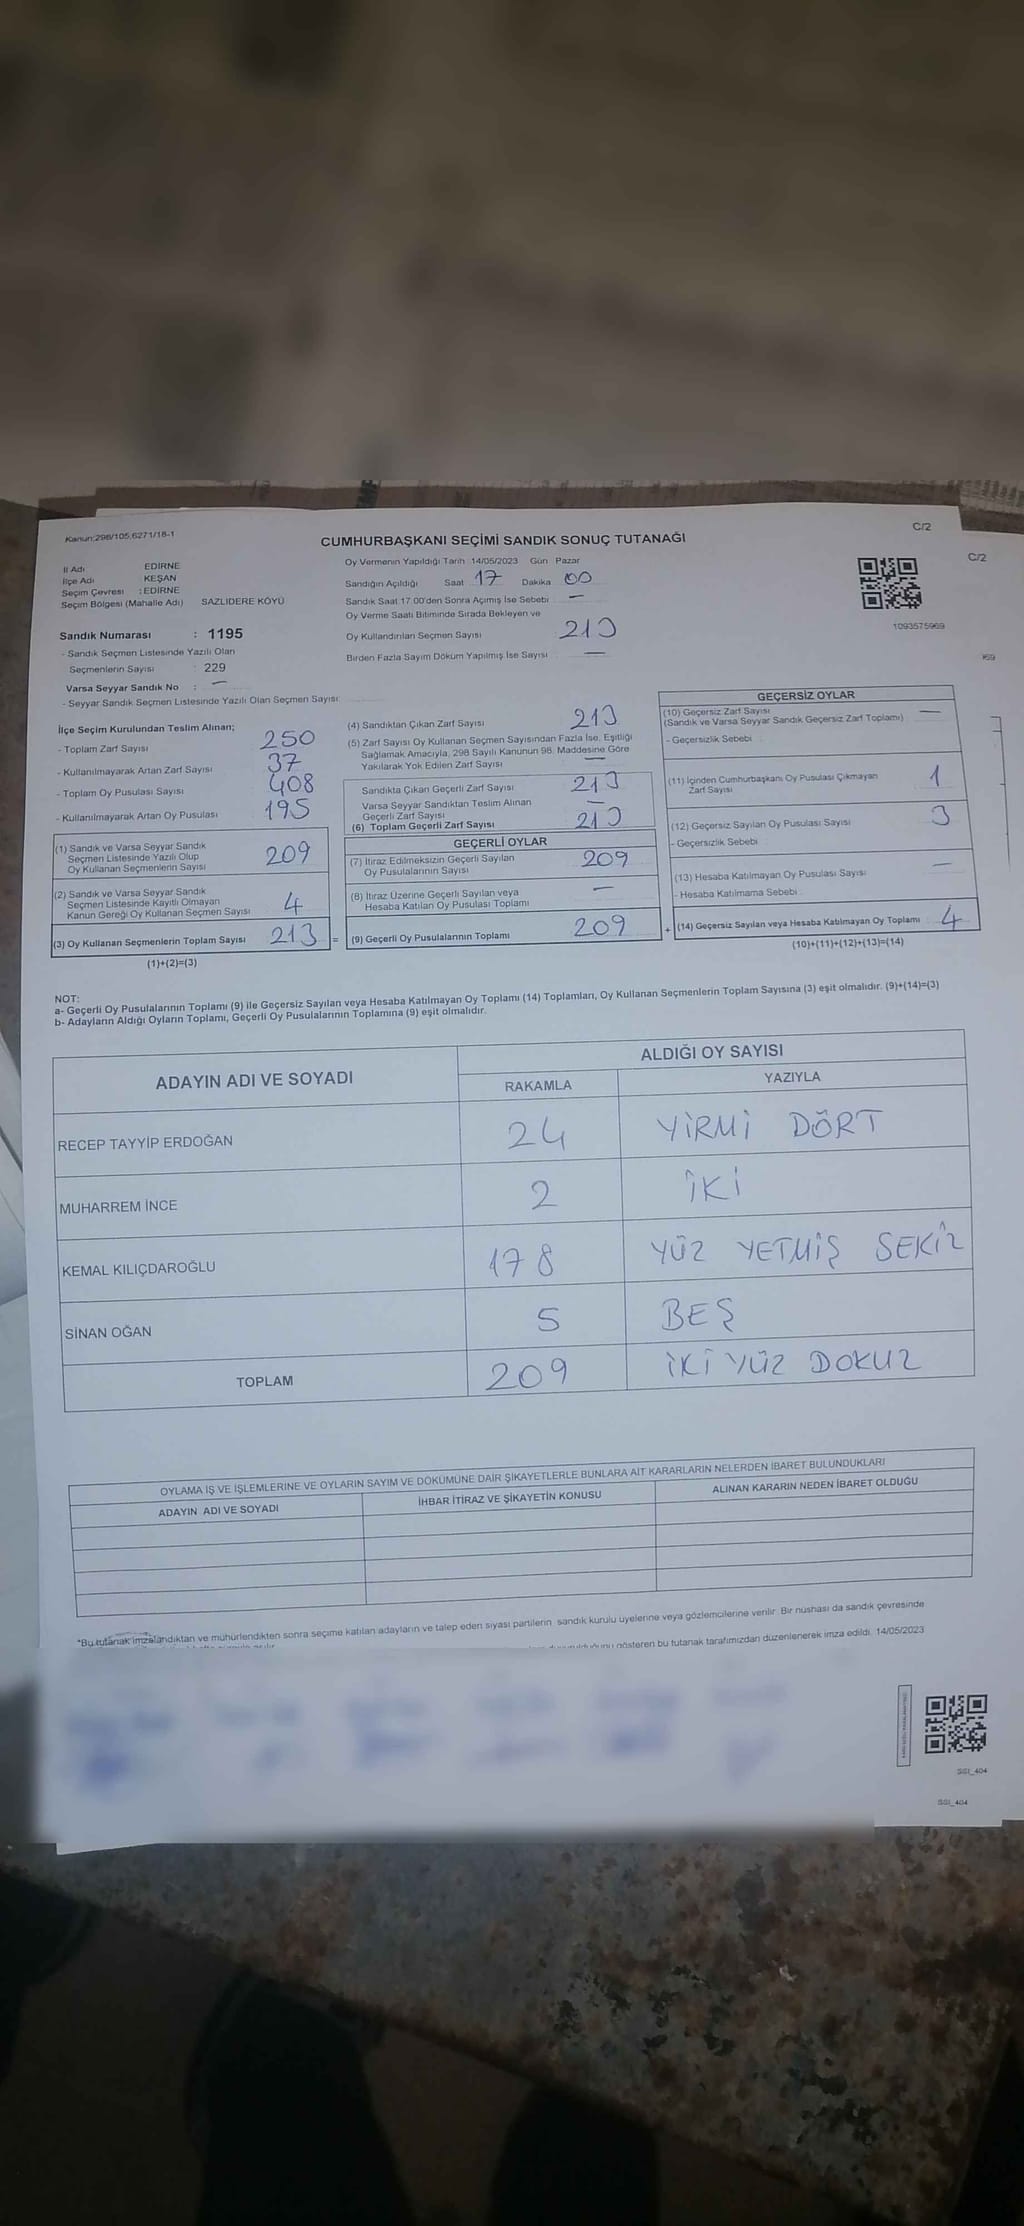 Kanun:298/105,6271/18-1
C/2
C/2
CUMHURBAŞKANI SEÇİMİ SANDIK SONUÇ TUTANAĞI
İl Adı EDİRNE
İlçe Adı KEŞAN
Seçim Çevresi : EDİRNE
Seçim Bölgesi (Mahalle Adı) SAZLIDERE KÖYÜ
Sandık Numarası : 1195
- Sandık Seçmen Listesinde Yazılı Olan
Seçmenlerin Sayısı : 229
Varsa Seyyar Sandık No : —
- Seyyar Sandık Seçmen Listesinde Yazılı Olan Seçmen Sayısı:
Oy Vermenin Yapıldığı Tarih 14/05/2023 Gün Pazar
Sandığın Açıldığı Saat 17 Dakika 00
Sandık Saat 17.00'den Sonra Açımış İse Sebebi —
Oy Verme Saati Bitiminde Sırada Bekleyen ve
Oy Kullandırılan Seçmen Sayısı 213
Birden Fazla Sayım Döküm Yapılmış İse Sayısı —
1093575969
İlçe Seçim Kurulundan Teslim Alınan;
- Toplam Zarf Sayısı 250
- Kullanılmayarak Artan Zarf Sayısı 37
- Toplam Oy Pusulası Sayısı 408
- Kullanılmayarak Artan Oy Pusulası 195
(1) Sandık ve Varsa Seyyar Sandık
Seçmen Listesinde Yazılı Olup
Oy Kullanan Seçmenlerin Sayısı 209
(2) Sandık ve Varsa Seyyar Sandık
Seçmen Listesinde Kayıtlı Olmayan
Kanun Gereği Oy Kullanan Seçmen Sayısı 4
(3) Oy Kullanan Seçmenlerin Toplam Sayısı 213 =
(1)+(2)=(3)
(4) Sandıktan Çıkan Zarf Sayısı 213
(5) Zarf Sayısı Oy Kullanan Seçmen Sayısından Fazla İse, Eşitliği
Sağlamak Amacıyla, 298 Sayılı Kanunun 98. Maddesine Göre
Yakılarak Yok Edilen Zarf Sayısı —
Sandıkta Çıkan Geçerli Zarf Sayısı 213
Varsa Seyyar Sandıktan Teslim Alınan
Geçerli Zarf Sayısı —
(6) Toplam Geçerli Zarf Sayısı 213
GEÇERLİ OYLAR
(7) İtiraz Edilmeksizin Geçerli Sayılan
Oy Pusulalarının Sayısı 209
(8) İtiraz Üzerine Geçerli Sayılan veya
Hesaba Katılan Oy Pusulası Toplamı —
(9) Geçerli Oy Pusulalarının Toplamı 209 +
GEÇERSİZ OYLAR
(10) Geçersiz Zarf Sayısı —
(Sandık ve Varsa Seyyar Sandık Geçersiz Zarf Toplamı)
- Geçersizlik Sebebi :
(11) İçinden Cumhurbaşkanı Oy Pusulası Çıkmayan
Zarf Sayısı 1
(12) Geçersiz Sayılan Oy Pusulası Sayısı 3
- Geçersizlik Sebebi :
(13) Hesaba Katılmayan Oy Pusulası Sayısı —
- Hesaba Katılmama Sebebi :
(14) Geçersiz Sayılan veya Hesaba Katılmayan Oy Toplamı 4
(10)+(11)+(12)+(13)=(14)
NOT:
a- Geçerli Oy Pusulalarının Toplamı (9) ile Geçersiz Sayılan veya Hesaba Katılmayan Oy Toplamı (14) Toplamları, Oy Kullanan Seçmenlerin Toplam Sayısına (3) eşit olmalıdır. (9)+(14)=(3)
b- Adayların Aldığı Oyların Toplamı, Geçerli Oy Pusulalarının Toplamına (9) eşit olmalıdır.
ADAYIN ADI VE SOYADI
ALDIĞI OY SAYISI
RAKAMLA YAZIYLA
RECEP TAYYİP ERDOĞAN 24 YİRMİ DÖRT
MUHARREM İNCE 2 İKİ
KEMAL KILIÇDAROĞLU 178 YÜZ YETMİŞ SEKİZ
SİNAN OĞAN 5 BEŞ
TOPLAM 209 İKİ YÜZ DOKUZ
OYLAMA İŞ VE İŞLEMLERİNE VE OYLARIN SAYIM VE DÖKÜMÜNE DAİR ŞİKAYETLERLE BUNLARA AİT KARARLARIN NELERDEN İBARET BULUNDUKLARI
ADAYIN ADI VE SOYADI İHBAR İTİRAZ VE ŞİKAYETİN KONUSU ALINAN KARARIN NEDEN İBARET OLDUĞU
*Bu tutanak imzalandıktan ve mühürlendikten sonra seçime katılan adayların ve talep eden siyasi partilerin sandık kurulu üyelerine veya gözlemcilerine verilir. Bir nüshası da sandık çevresinde
gösteren bu tutanak tarafımızdan düzenlenerek imza edildi. 14/05/2023
SSI_404
SSI_404